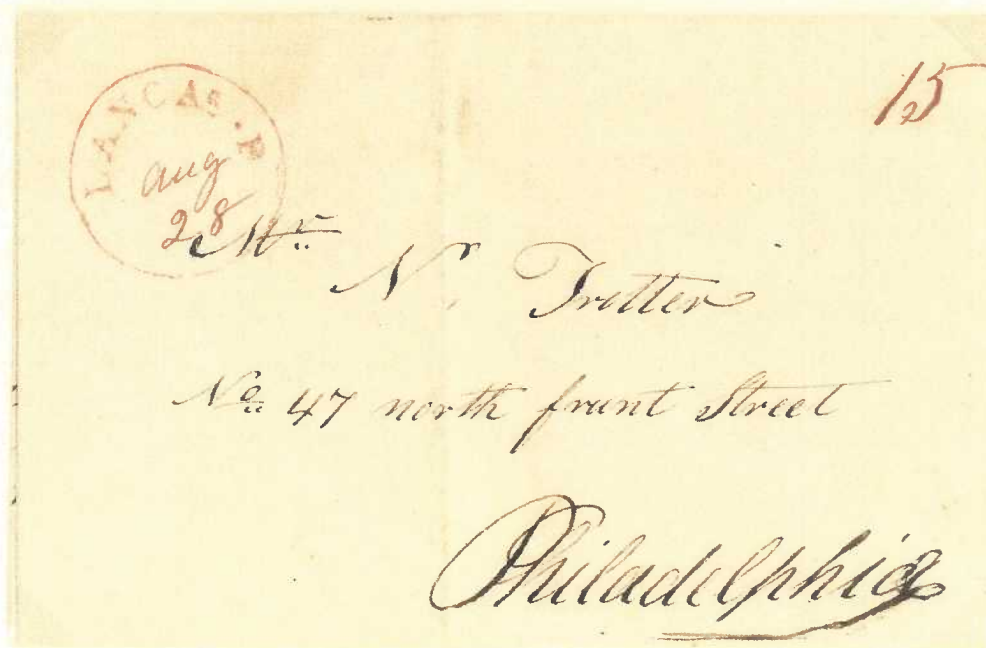 LANCAS. P
Aug
28
12½
Mr
N. Trotter
No 47 north frunt Street
Philadelphia